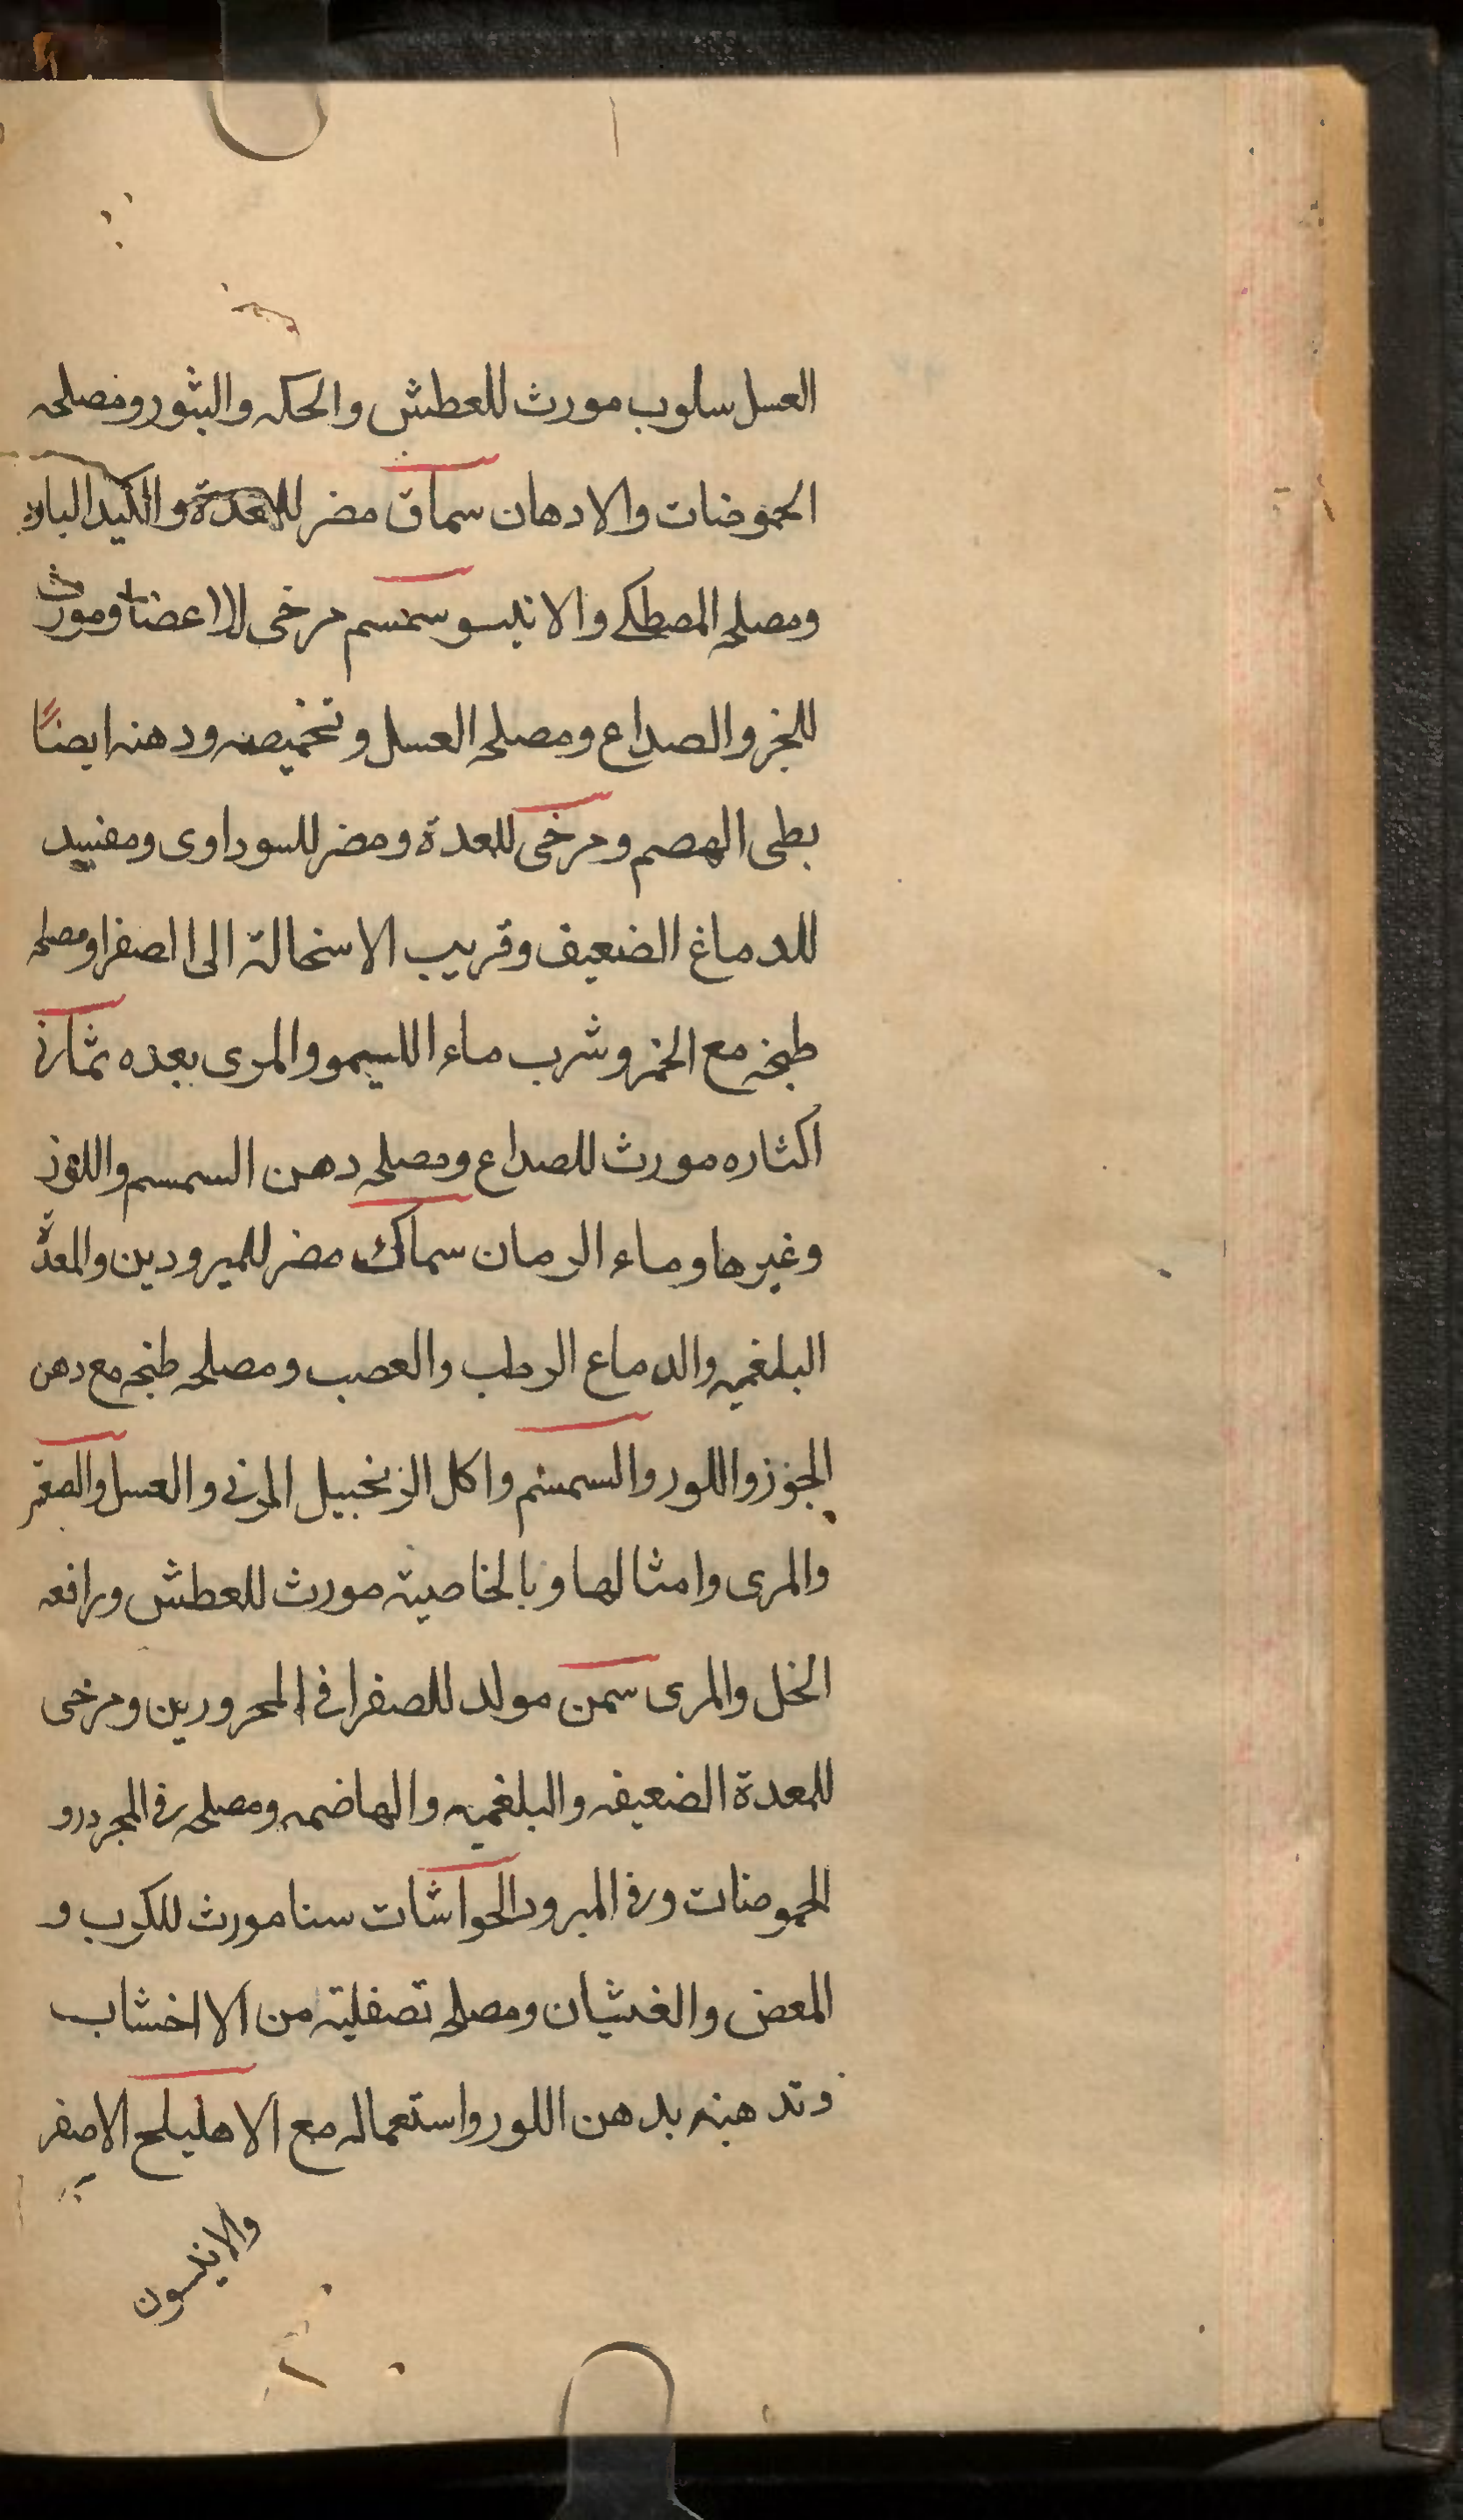 العسل سلوب مورث للعطش والحكه والبثور ومصلحه
الحموضات والادهان سماق مضر للمعدة والكبد البارد
ومصلحه المصطكے والانيسو سمسم مرخى للاعضا ومورث
للبخر والصداع ومصلحه العسل وتخميصه ودهنه ايضًا
بطى الهصم ومرخى للعدة ومضر للسوداوى ومفسد
للدماغ الضعيف وقريب الاستحالة الى الصفرا ومصلحه
طبخه مع الخمر وشرب ماء الليمو والمرى بعده
اكثاره مورث للصداع ومصلحه دهن السمسم واللوز
وغيرها وماء الرمان سماك مضر للمبرودين والمعدة
البلغميه والدماع الرطب والعصب ومصلحه طبخه مع دهن
الجوز واللور والسمسم واكل الزنجبيل المربى والعسل والصعتر
والمرى وامثالها وبالخاصية مورث للعطش ورافعه
الخل والمرى سمن مولد للصفرا فى المحرورين ومرخى
للمعدة الضعيفه والبلغميه والهاضمه ومصلحه فى المحرور
الحموضات وفى المبرود الجواشات سنا مورث للكرب و
المعض والغشيان ومصلحه تصفليته من الاخشاب
وتدهينه بدهن اللور واستعماله مع الاهليلج الاصفر
والانيسون